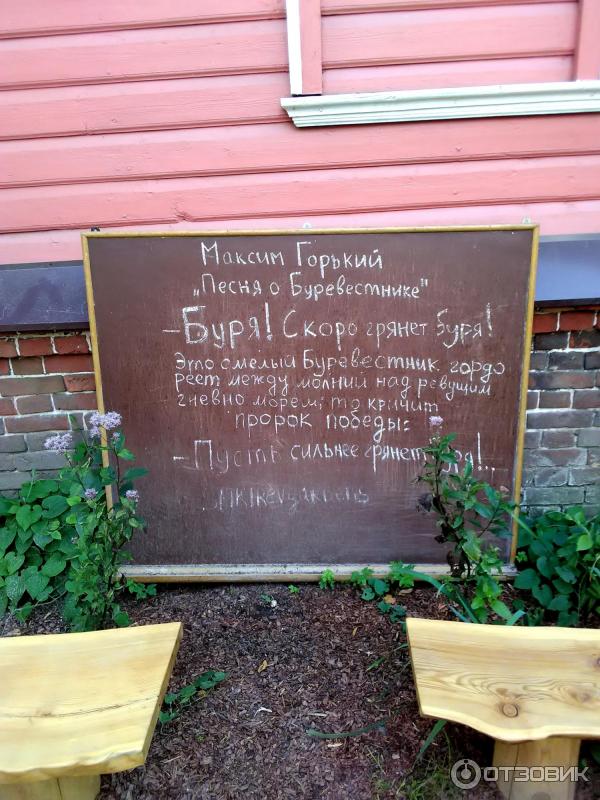 Максим Горький
„Песня о Буревестнике"
–Буря! Скоро грянет буря!
Это смелый Буревестник гордо
реет между молний над ревущим
гневно морем; то кричит
пророк победы:
–Пусть сильнее грянет буря!..
ОТЗОВИК